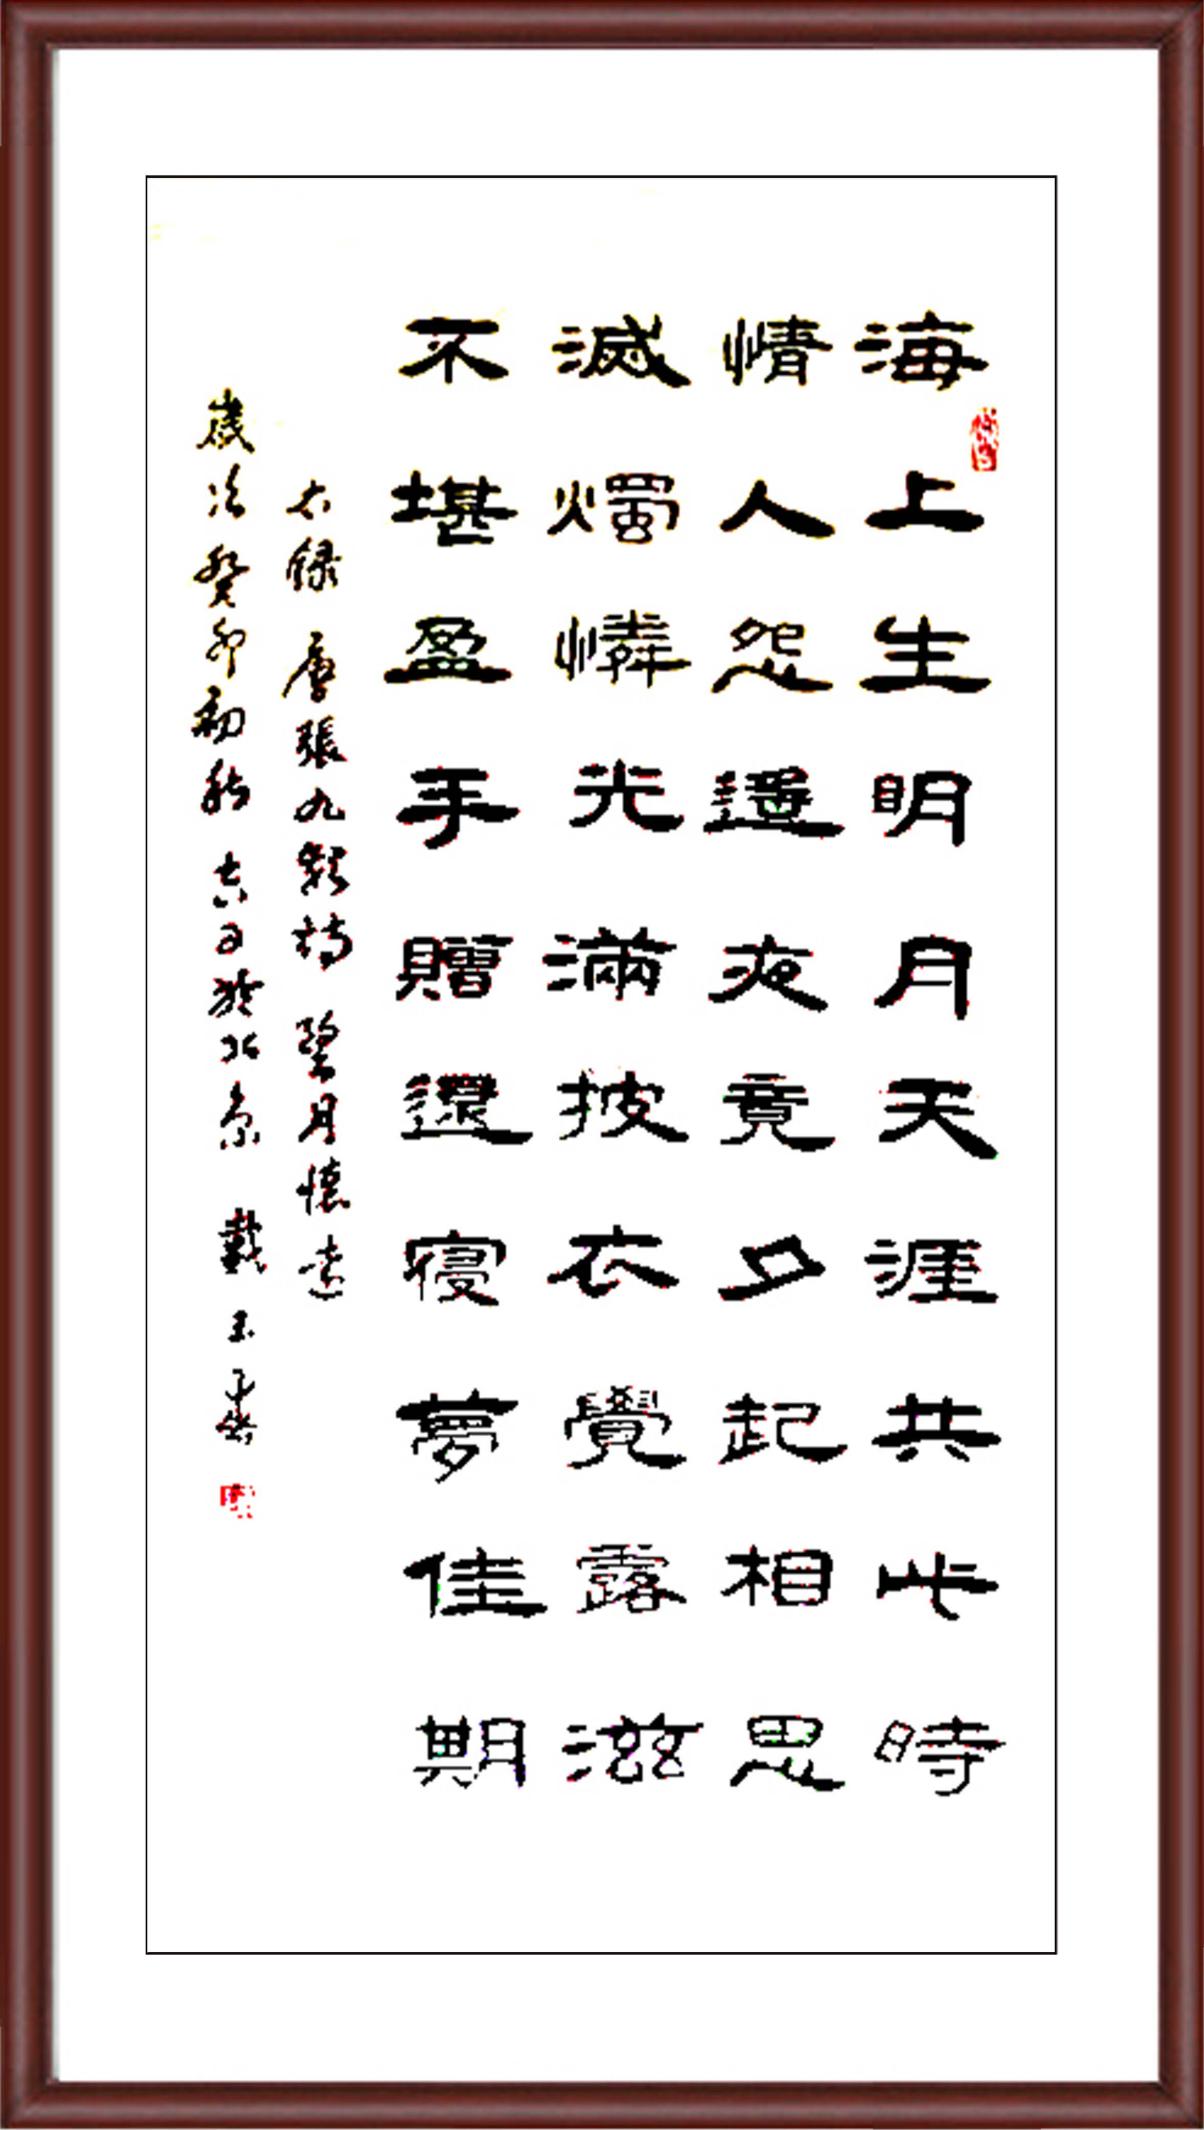 海上生明月天涯共此時
情人怨遥夜竟夕起相思
滅燭憐光滿披衣覺露滋
不堪盈手贈還寝夢佳期
右録唐張九齡詩望月懷遠
歲次癸卯初秋吉日於北京戴玉